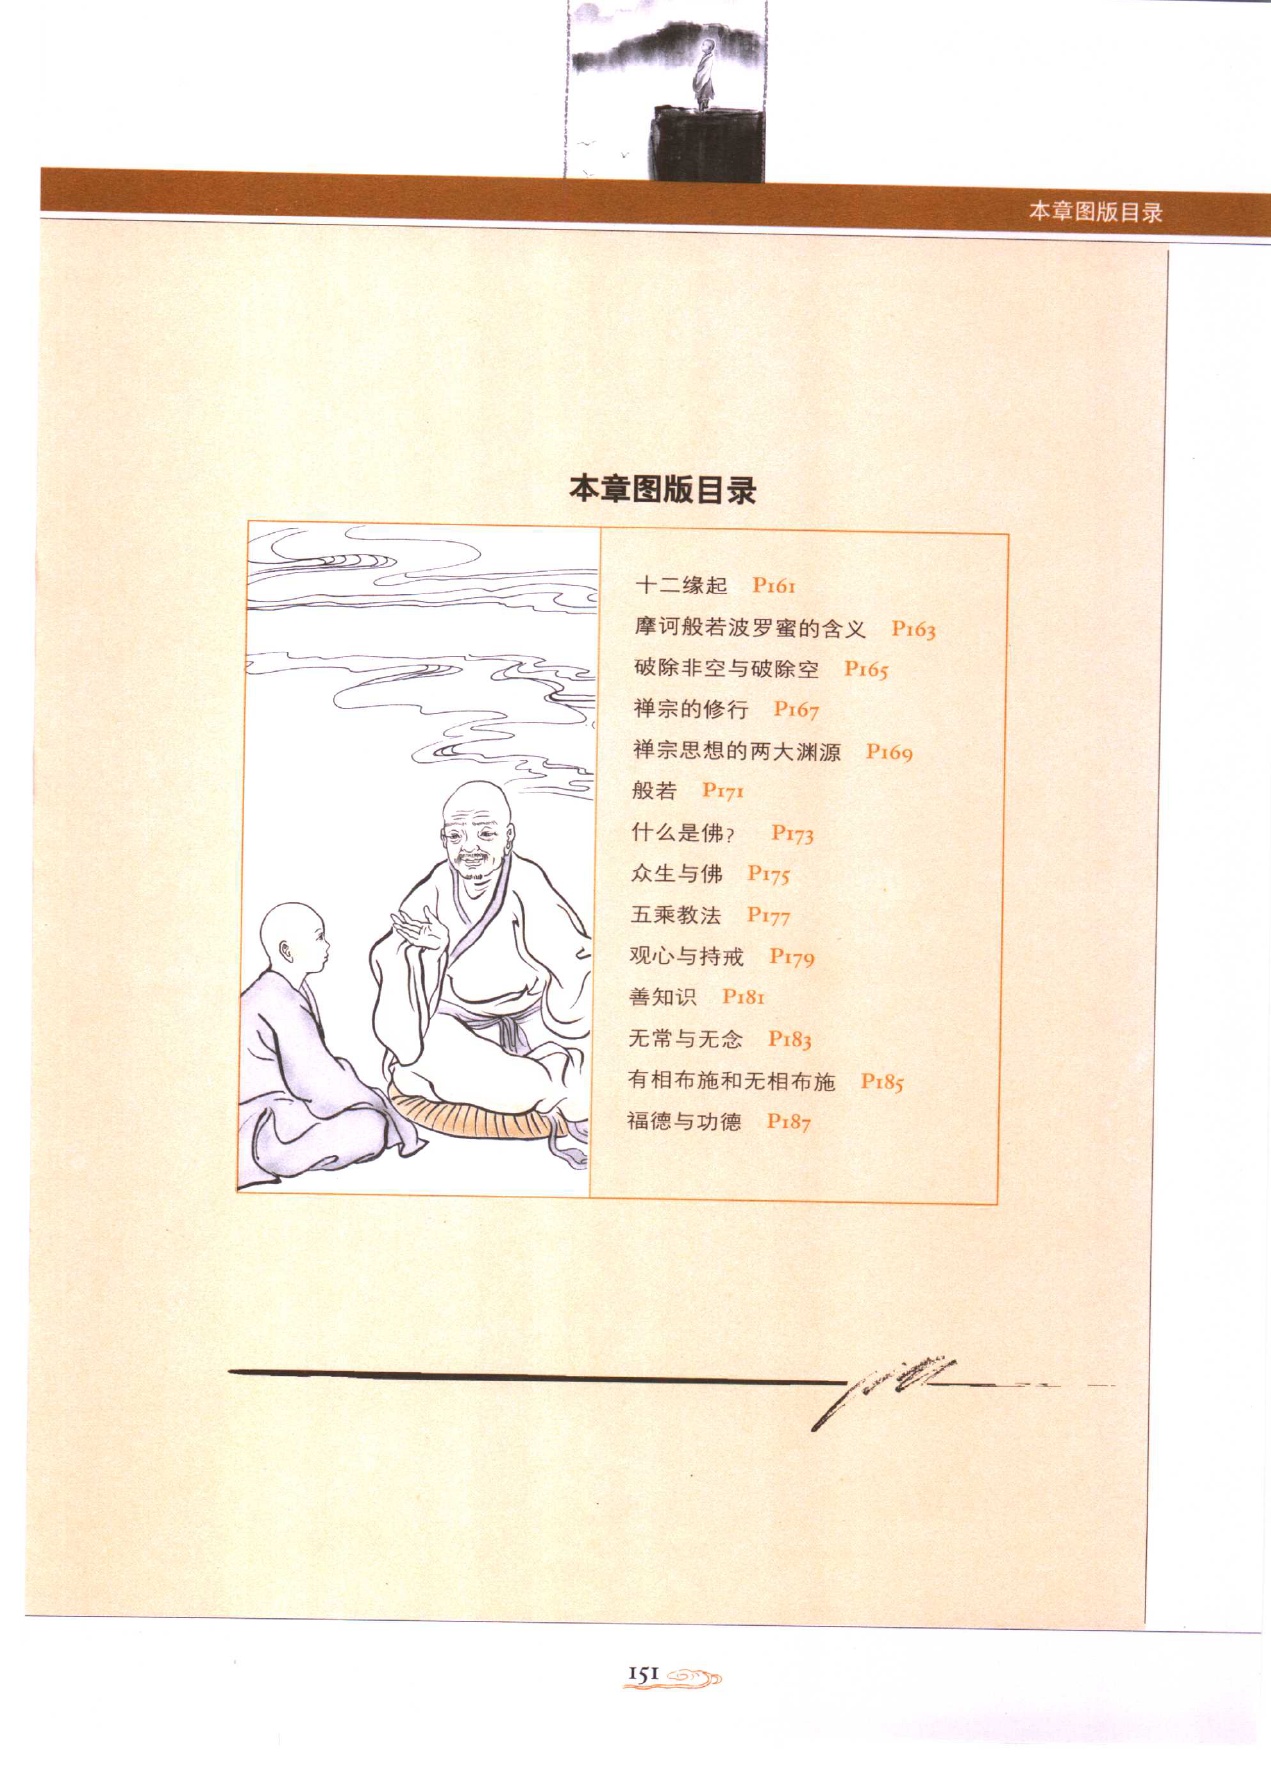 本章图版目录
本章图版目录
十二缘起 P161
摩诃般若波罗蜜的含义 P163
破除非空与破除空 P165
禅宗的修行 P167
禅宗思想的两大渊源 P169
般若 P171
什么是佛? P173
众生与佛 P175
五乘教法 P177
观心与持戒 P179
善知识 P181
无常与无念 P183
有相布施和无相布施 P185
福德与功德 P187
151